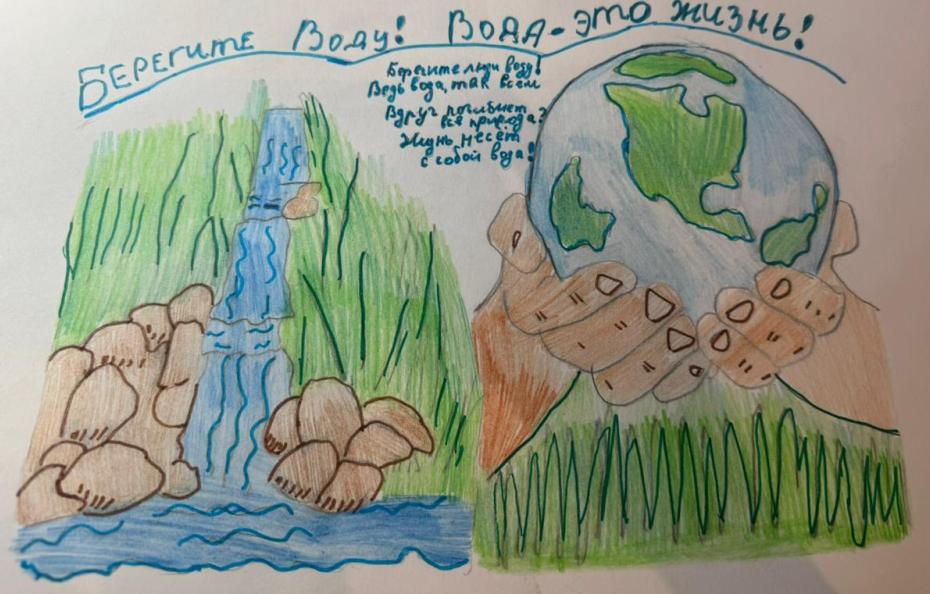 Берегите Воду! Вода-это жизнь!
Берегите люди воду!
Ведь вода, так всем
Вдруг погибнет
вся природа?
Жизнь несёт
с собой вода!